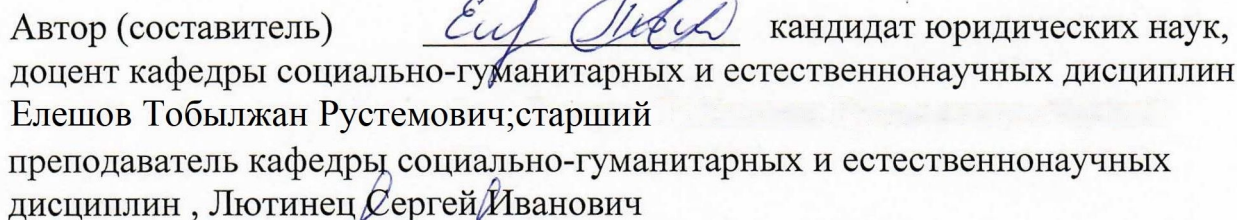 Автор (составитель) кандидат юридических наук,
доцент кафедры социально-гуманитарных и естественнонаучных дисциплин
Елешов Тобылжан Рустемович;старший
преподаватель кафедры социально-гуманитарных и естественнонаучных
дисциплин , Лютинец Сергей Иванович